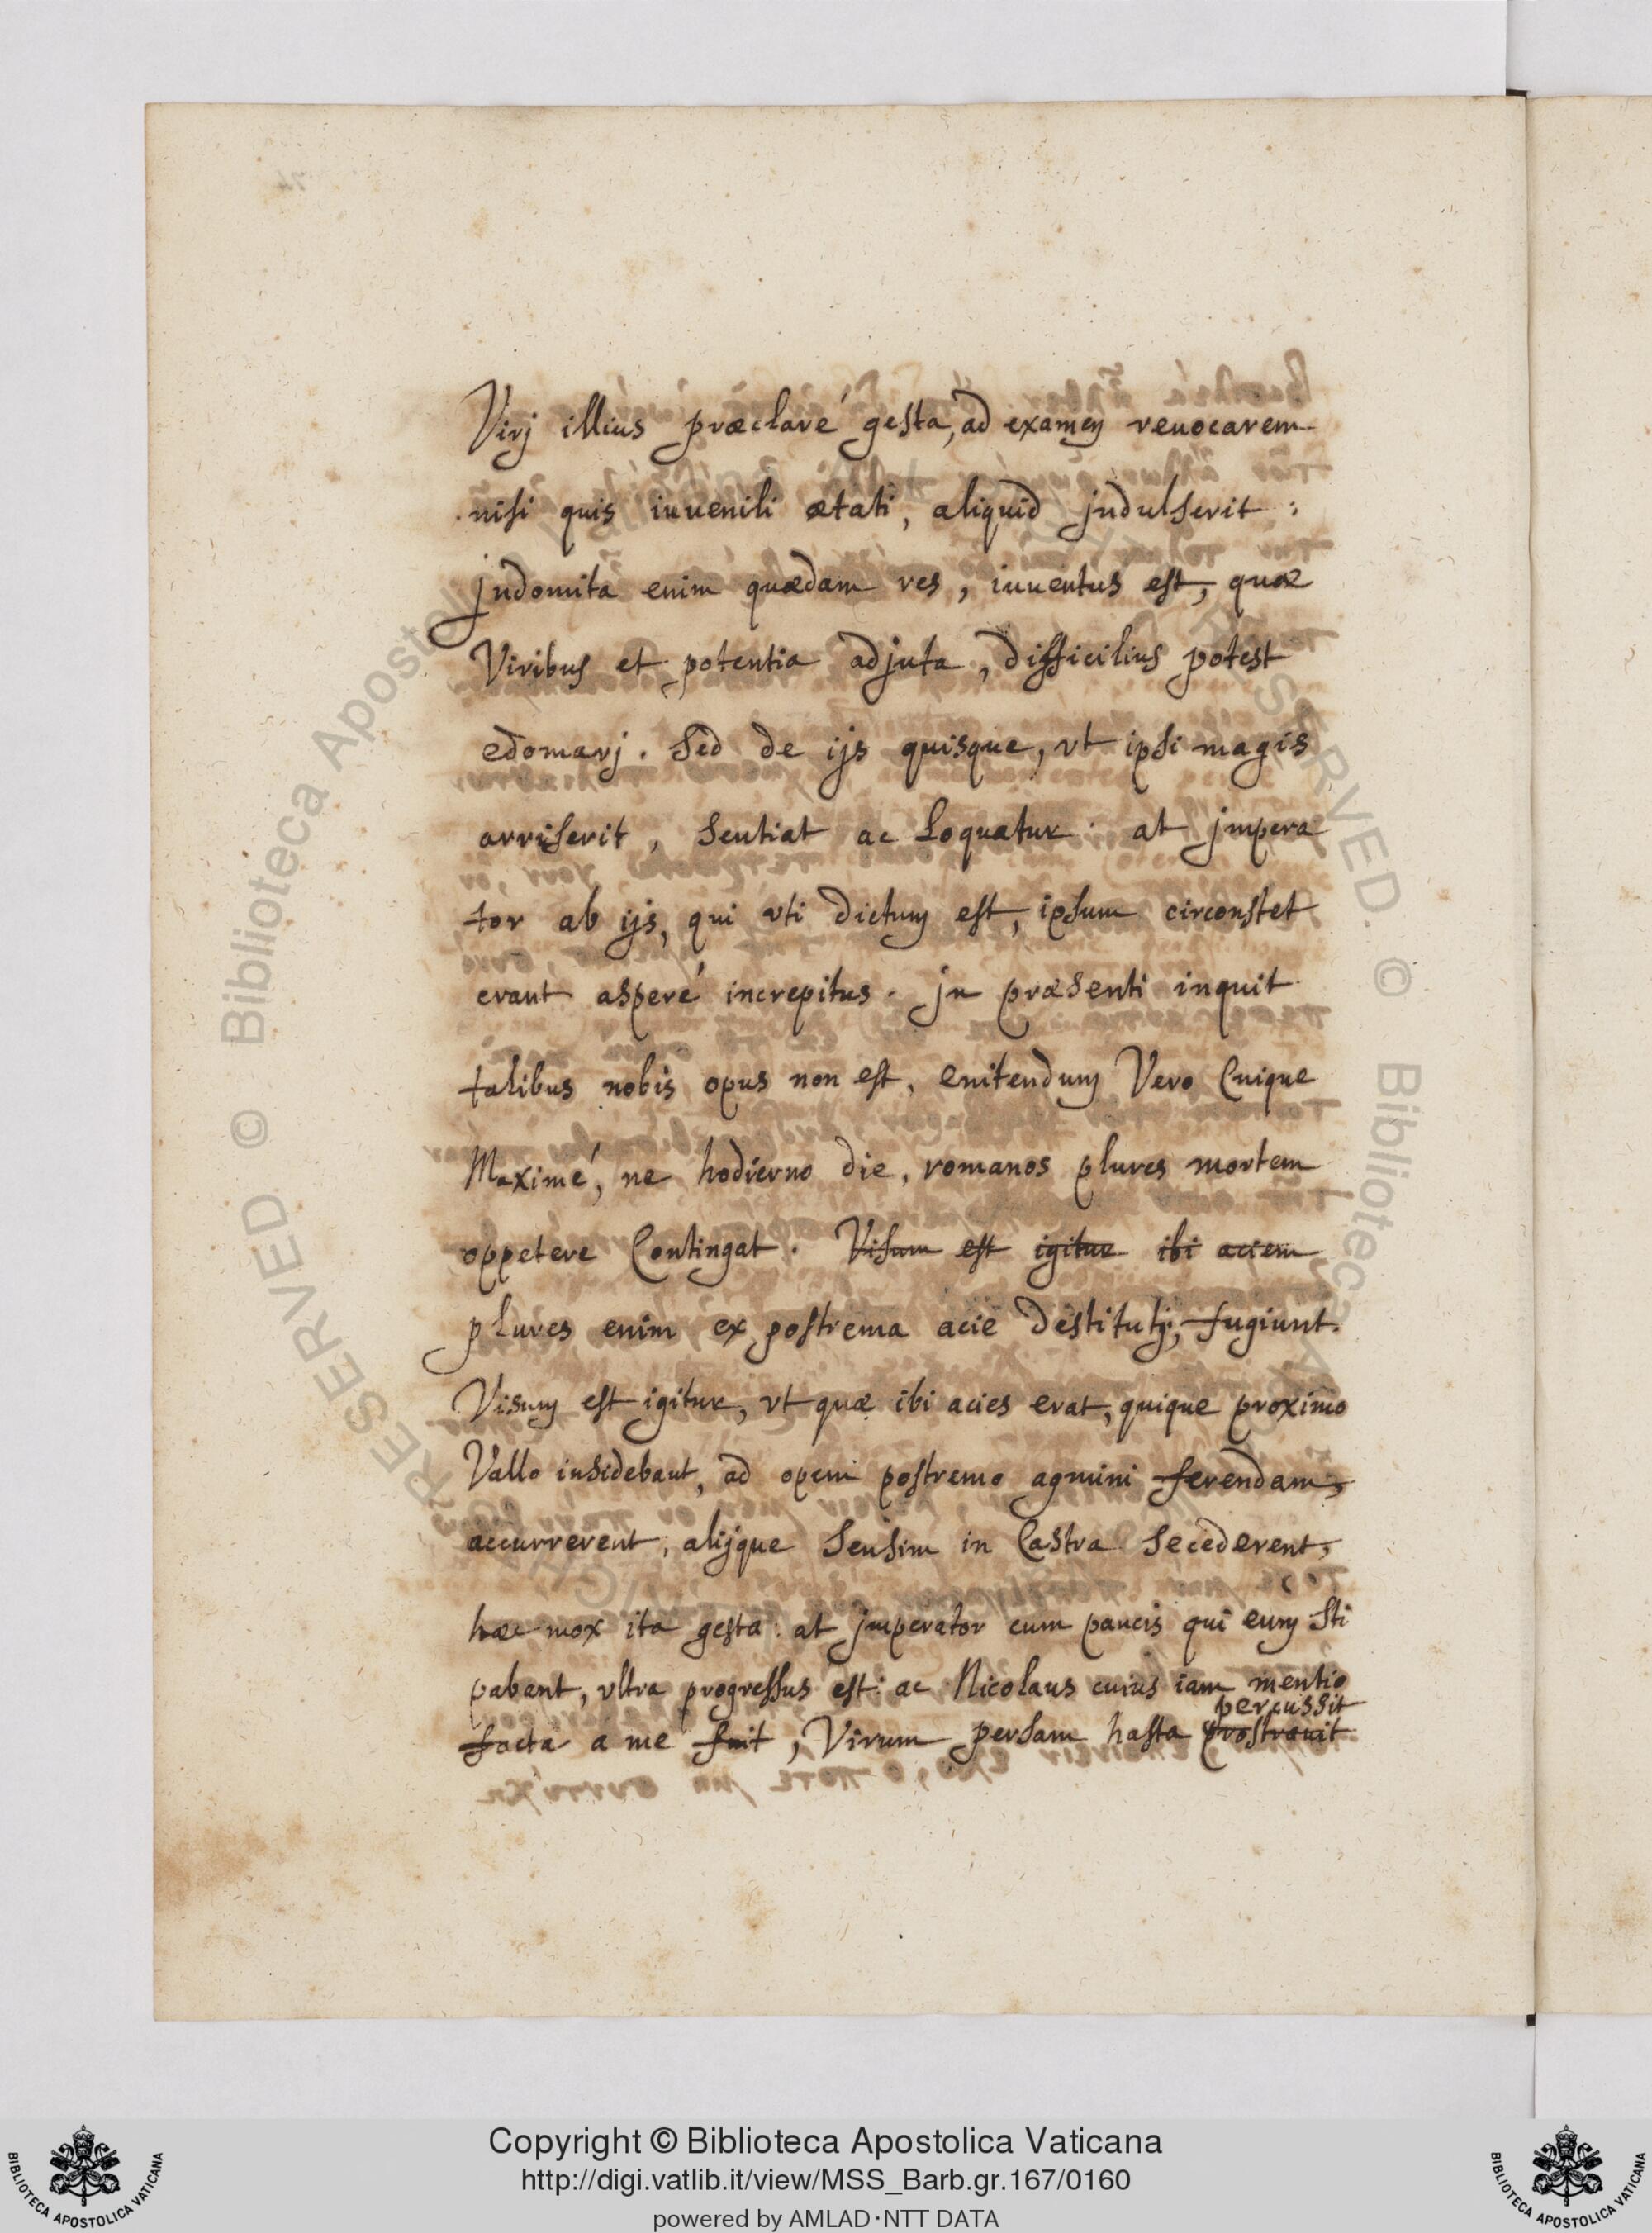 Virj illius præclaré gesta, ad examen reuocarem
nisi quis iuuenili ætati, aliquid jndulserit :
jndomita enim quædam res, iuuentus est, quæ
Viribus et potentia adjuta, difficilius potest
edomarj. Sed de ijs quisque, vt ipsi magis
arriserit, sentiat ac Loquatur. at jmpera
tor ab ijs, qui vti dictum est, ipsum circonstet
erant asperé increpitus. jn præsenti inquit
talibus nobis opus non est, enitendum Vero Cuique
Maximé, ne hodierno die, romanos plures mortem
oppetere Contingat. Visum est igitur ibi aciem
plures enim ex postrema acie destitutj, fugiunt.
Visum est igitur, vt quæ ibi acies erat, quique proximo
Vallo insidebant, ad opem postremo agmini ferendam,
accurrerent, alijque sensim in Castra secederent,
hæc mox ita gesta: at jmperator cum paucis qui eum sti
pabant, vltra progressus est: ac Nicolaus cuius iam mentio
percussit
facta á me fuit, Virum persam hasta prostrauit
RESERVED. © Biblioteca Apostolica Vaticana
Copyright © Biblioteca Apostolica Vaticana
http://digi.vatlib.it/view/MSS_Barb.gr.167/0160
powered by AMLAD·NTT DATA
BIBLIOTECA APOSTOLICA VATICANA
BIBLIOTECA APOSTOLICA VATICANA